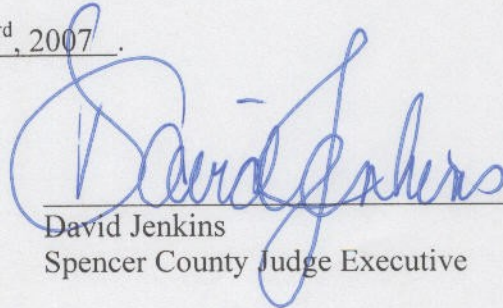 rd, 2007.
David Jenkins
David Jenkins
Spencer County Judge Executive